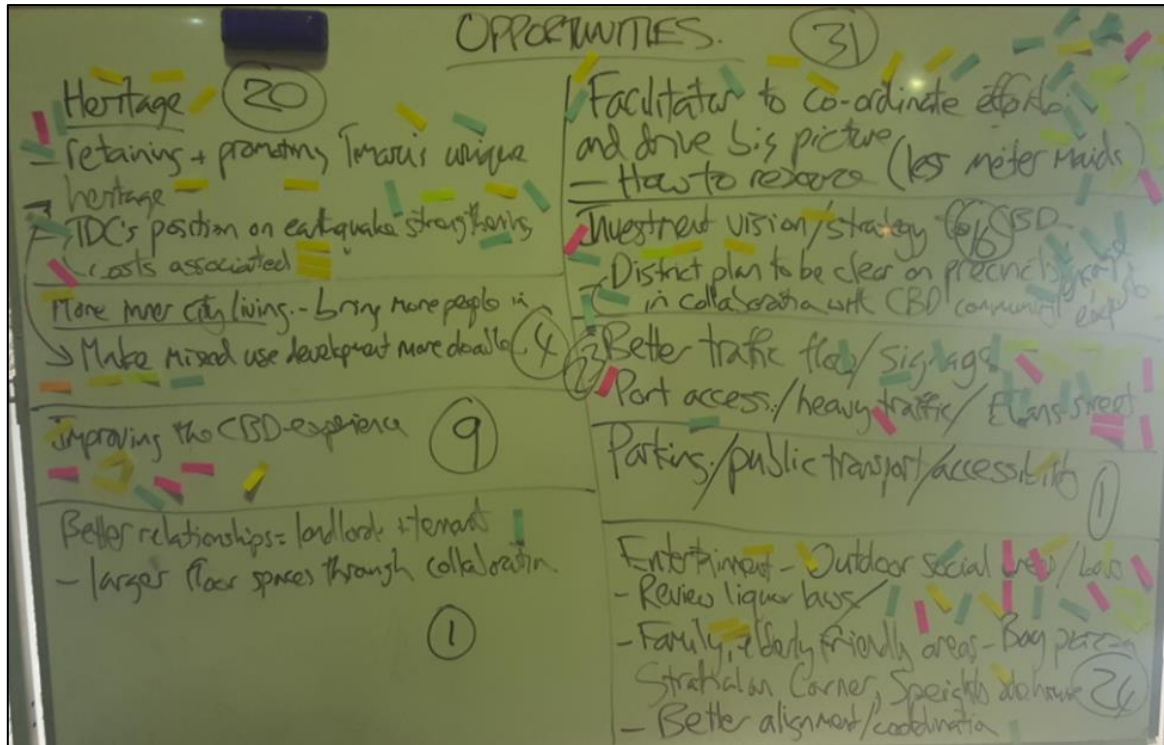 OPPORTUNITIES.
31
Heritage 20
- retaining + promoting Timaru's unique
heritage
- TDC's position on earthquake strengthening
costs associated
More inner city living - bring more people in
Make mixed use development more doable
4
Improving the CBD experience 9
Better relationships = landlords + tenant
- larger floor spaces through collaboration
1
Facilitator to co-ordinate efforts
and drive big picture
- How to resource (less meter maids)
Investment vision/strategy CBD
16
- District plan to be clear on precincts
in collaboration with CBD community
23
Better traffic flow/signage
Port access/heavy traffic/Evans street
Parking/public transport/accessibility
1
Entertainment - Outdoor social areas/
- Review liquor laws/
- Family, elderly friendly areas - Bay
Corner, Speights alehouse
24
- Better alignment/coordination